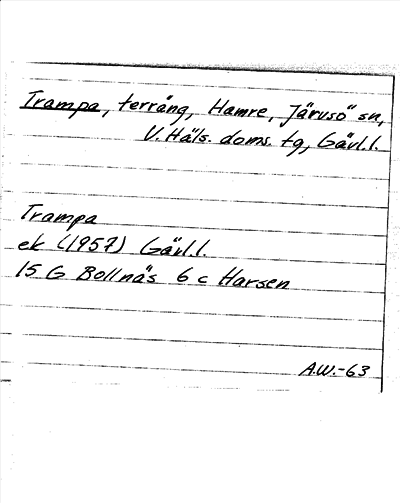 Trampa, terräng, Hamre, Järvsö sn,
V. Häls. doms. tg, Gävl.l.
Trampa
ek (1957) Gävl.l.
15 G Bollnäs 6 c Harsen
A.W.-63